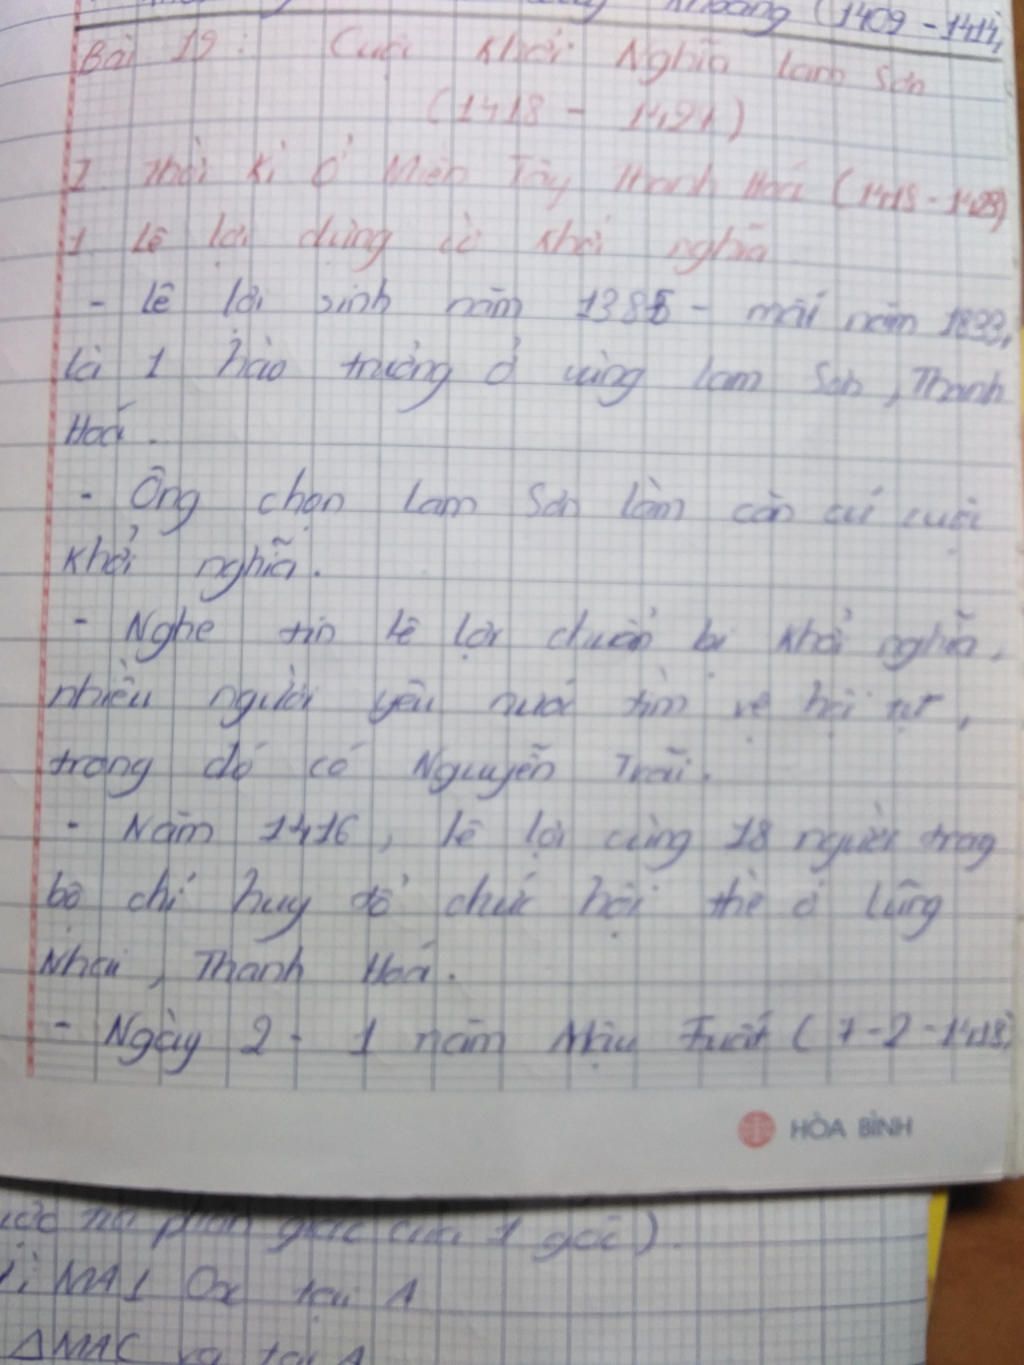 Khoáng (1409 - 1414)
Bài 19: Cuộc Khởi Nghĩa Lam Sơn
(1418 - 1427)
I. Thời kì ở Miền Tây Thanh Hoá (1418 - 1423)
1. Lê Lợi dựng cờ khởi nghĩa
- Lê Lợi sinh năm 1385 - mất năm 1833,
là 1 hào trưởng ở vùng Lam Sơn, Thanh
Hoá.
- Ông chọn Lam Sơn làm căn cứ cuộc
khởi nghĩa.
- Nghe tin Lê Lợi chuẩn bị khởi nghĩa,
nhiều người yêu nước tìm về hội tụ,
trong đó có Nguyễn Trãi.
- Năm 1416, Lê Lợi cùng 18 người trog
bộ chỉ huy tổ chức hội thề ở Lũng
Nhai, Thanh Hoá.
- Ngày 2 - 1 năm Mậu Tuất (7-2-1418)
HÒA BÌNH
phân giác của 1 góc).
MA ⊥ Ox tại A
ΔMAC tại A